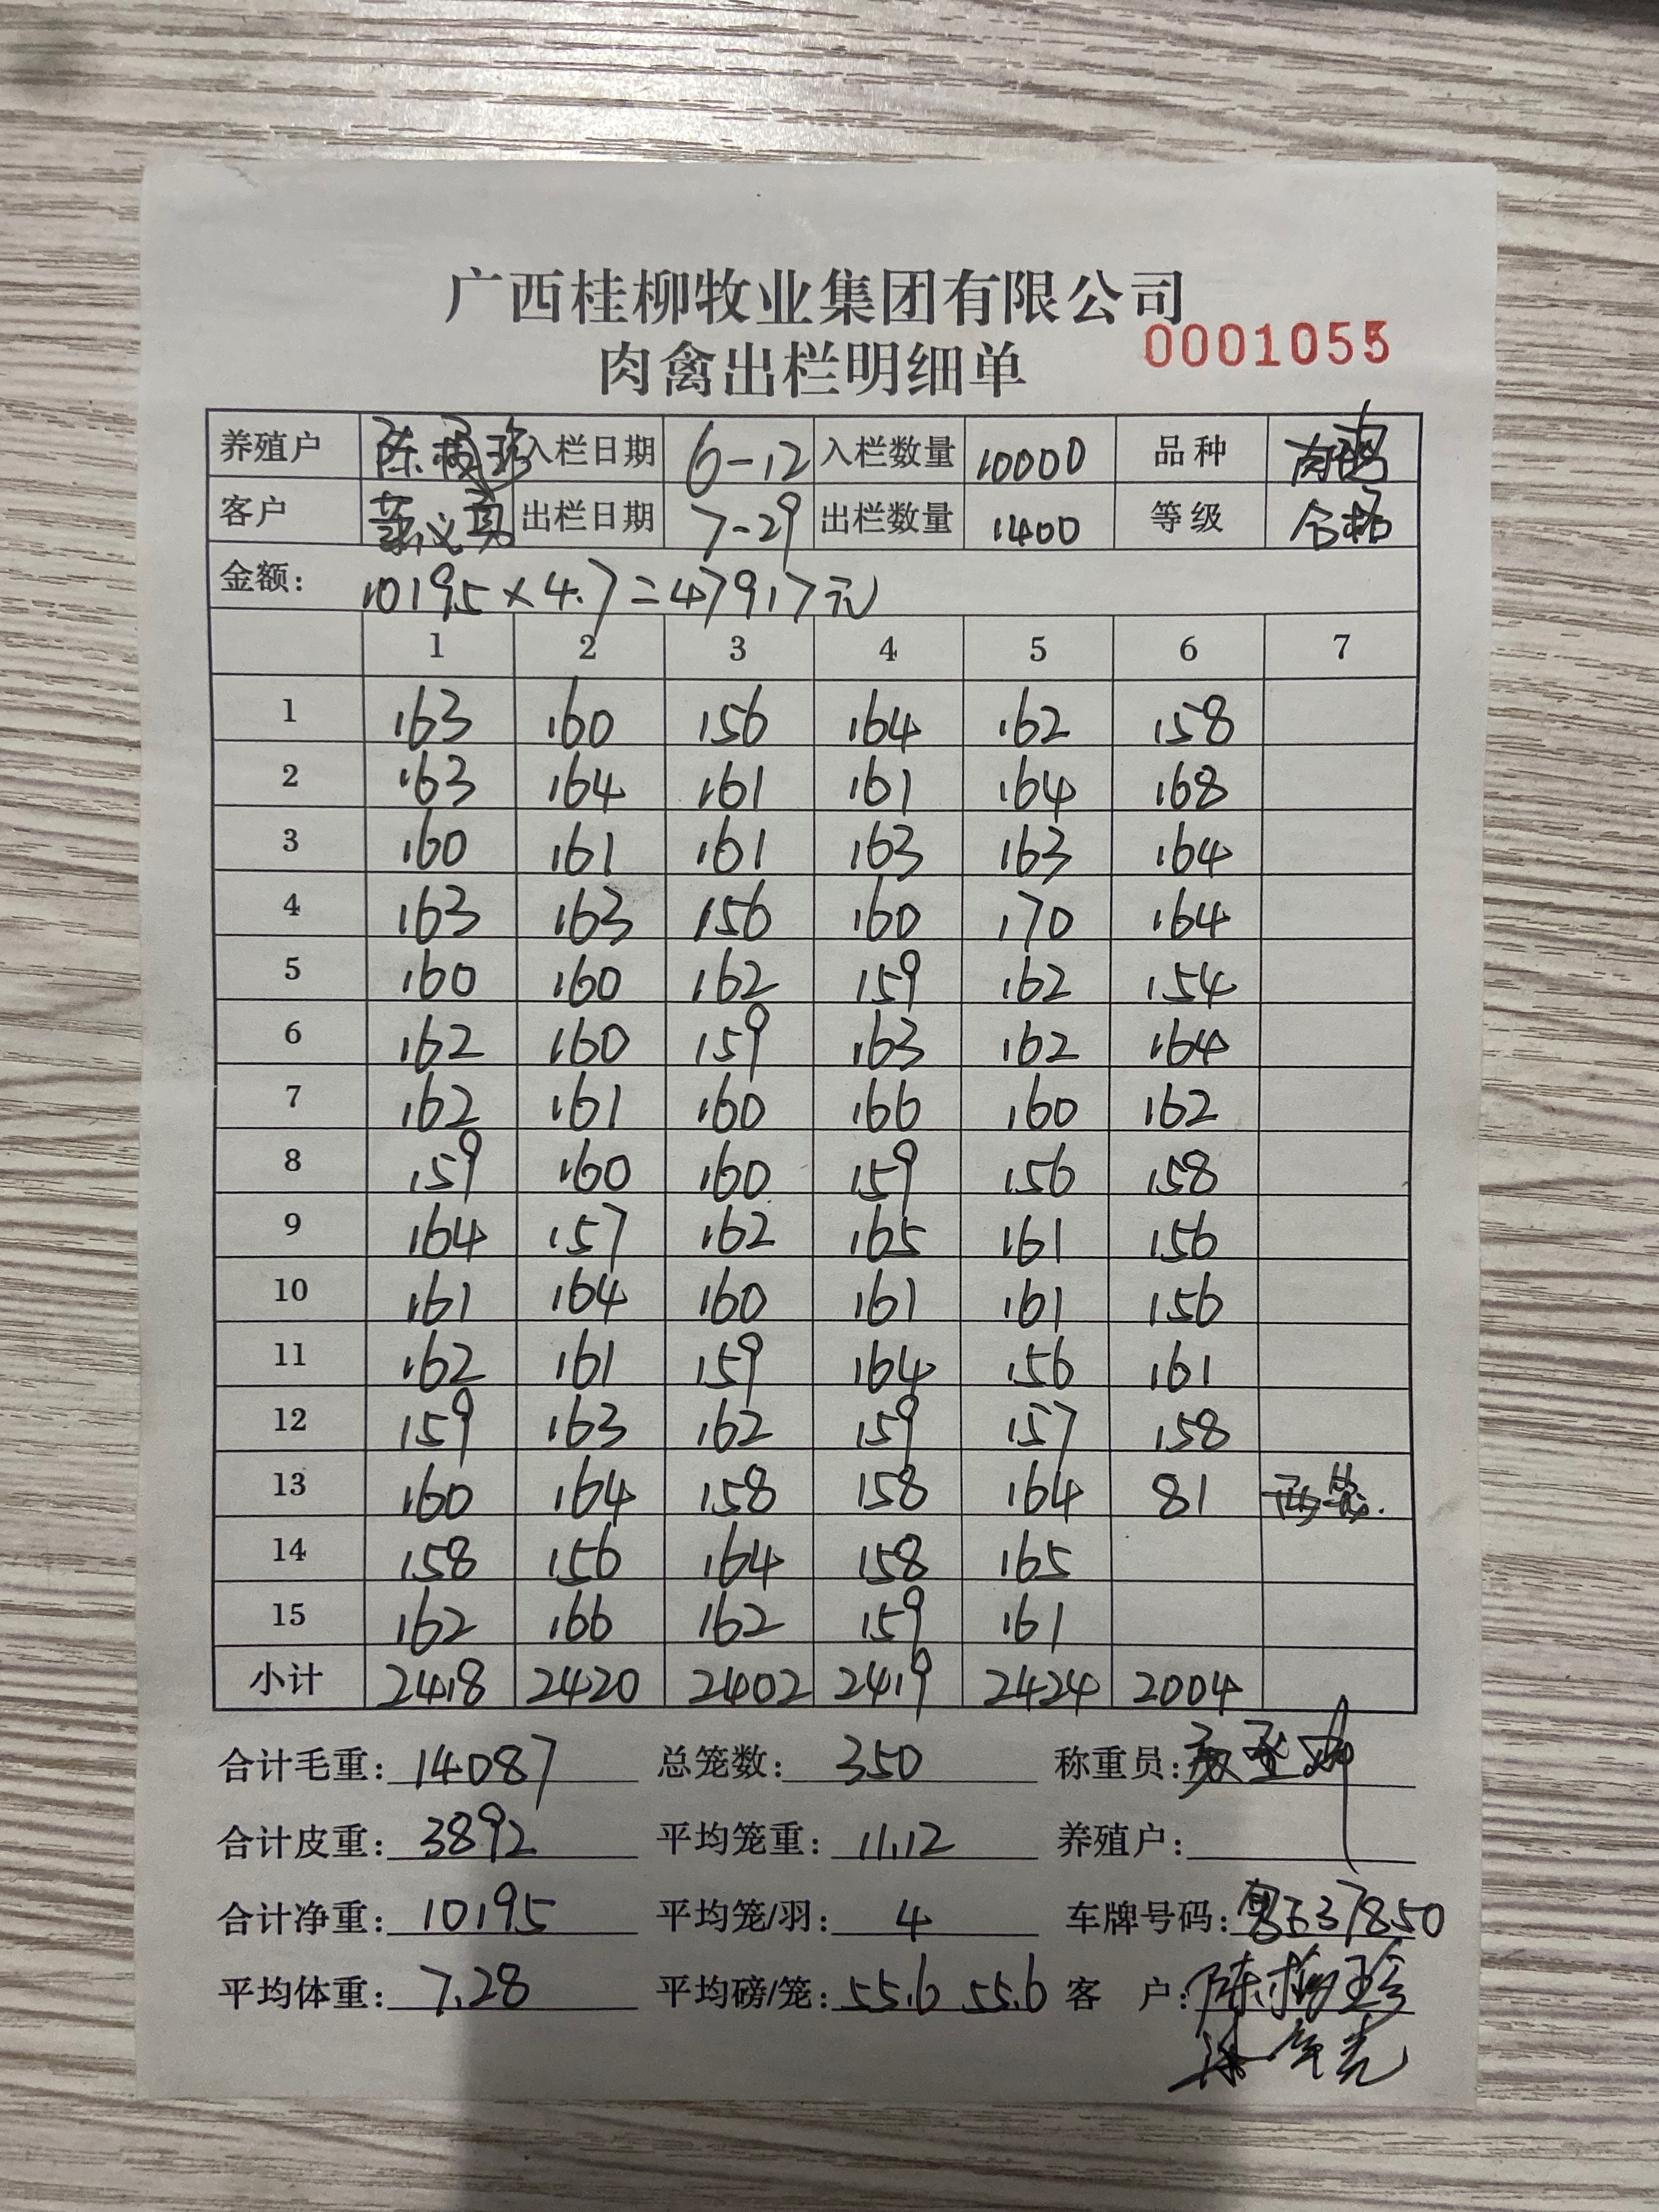 广西桂柳牧业集团有限公司
肉禽出栏明细单 0001055
养殖户 陈梅珍 入栏日期 6-12 入栏数量 10000 品种 肉鸡
客户 出栏日期 7-29 出栏数量 1400 等级 合格
金额: 10195×4.7=47917元
1 2 3 4 5 6 7
1 163 160 156 164 162 158
2 163 164 161 161 164 168
3 160 161 161 163 163 164
4 163 163 156 160 170 164
5 160 160 162 159 162 154
6 162 160 159 163 162 164
7 162 161 160 166 160 162
8 159 160 160 159 156 158
9 164 157 162 165 161 156
10 161 164 160 161 161 156
11 162 161 159 164 156 161
12 159 163 162 159 157 158
13 160 164 158 158 164 81 两笼.
14 158 156 164 158 165
15 162 166 162 159 161
小计 2418 2420 2402 2419 2424 2004
合计毛重: 14087 总笼数: 350 称重员:
合计皮重: 3892 平均笼重: 11.12 养殖户:
合计净重: 10195 平均笼/羽: 4 车牌号码: 37850
平均体重: 7.28 平均磅/笼: 55.6 55.6 客 户: 陈梅珍